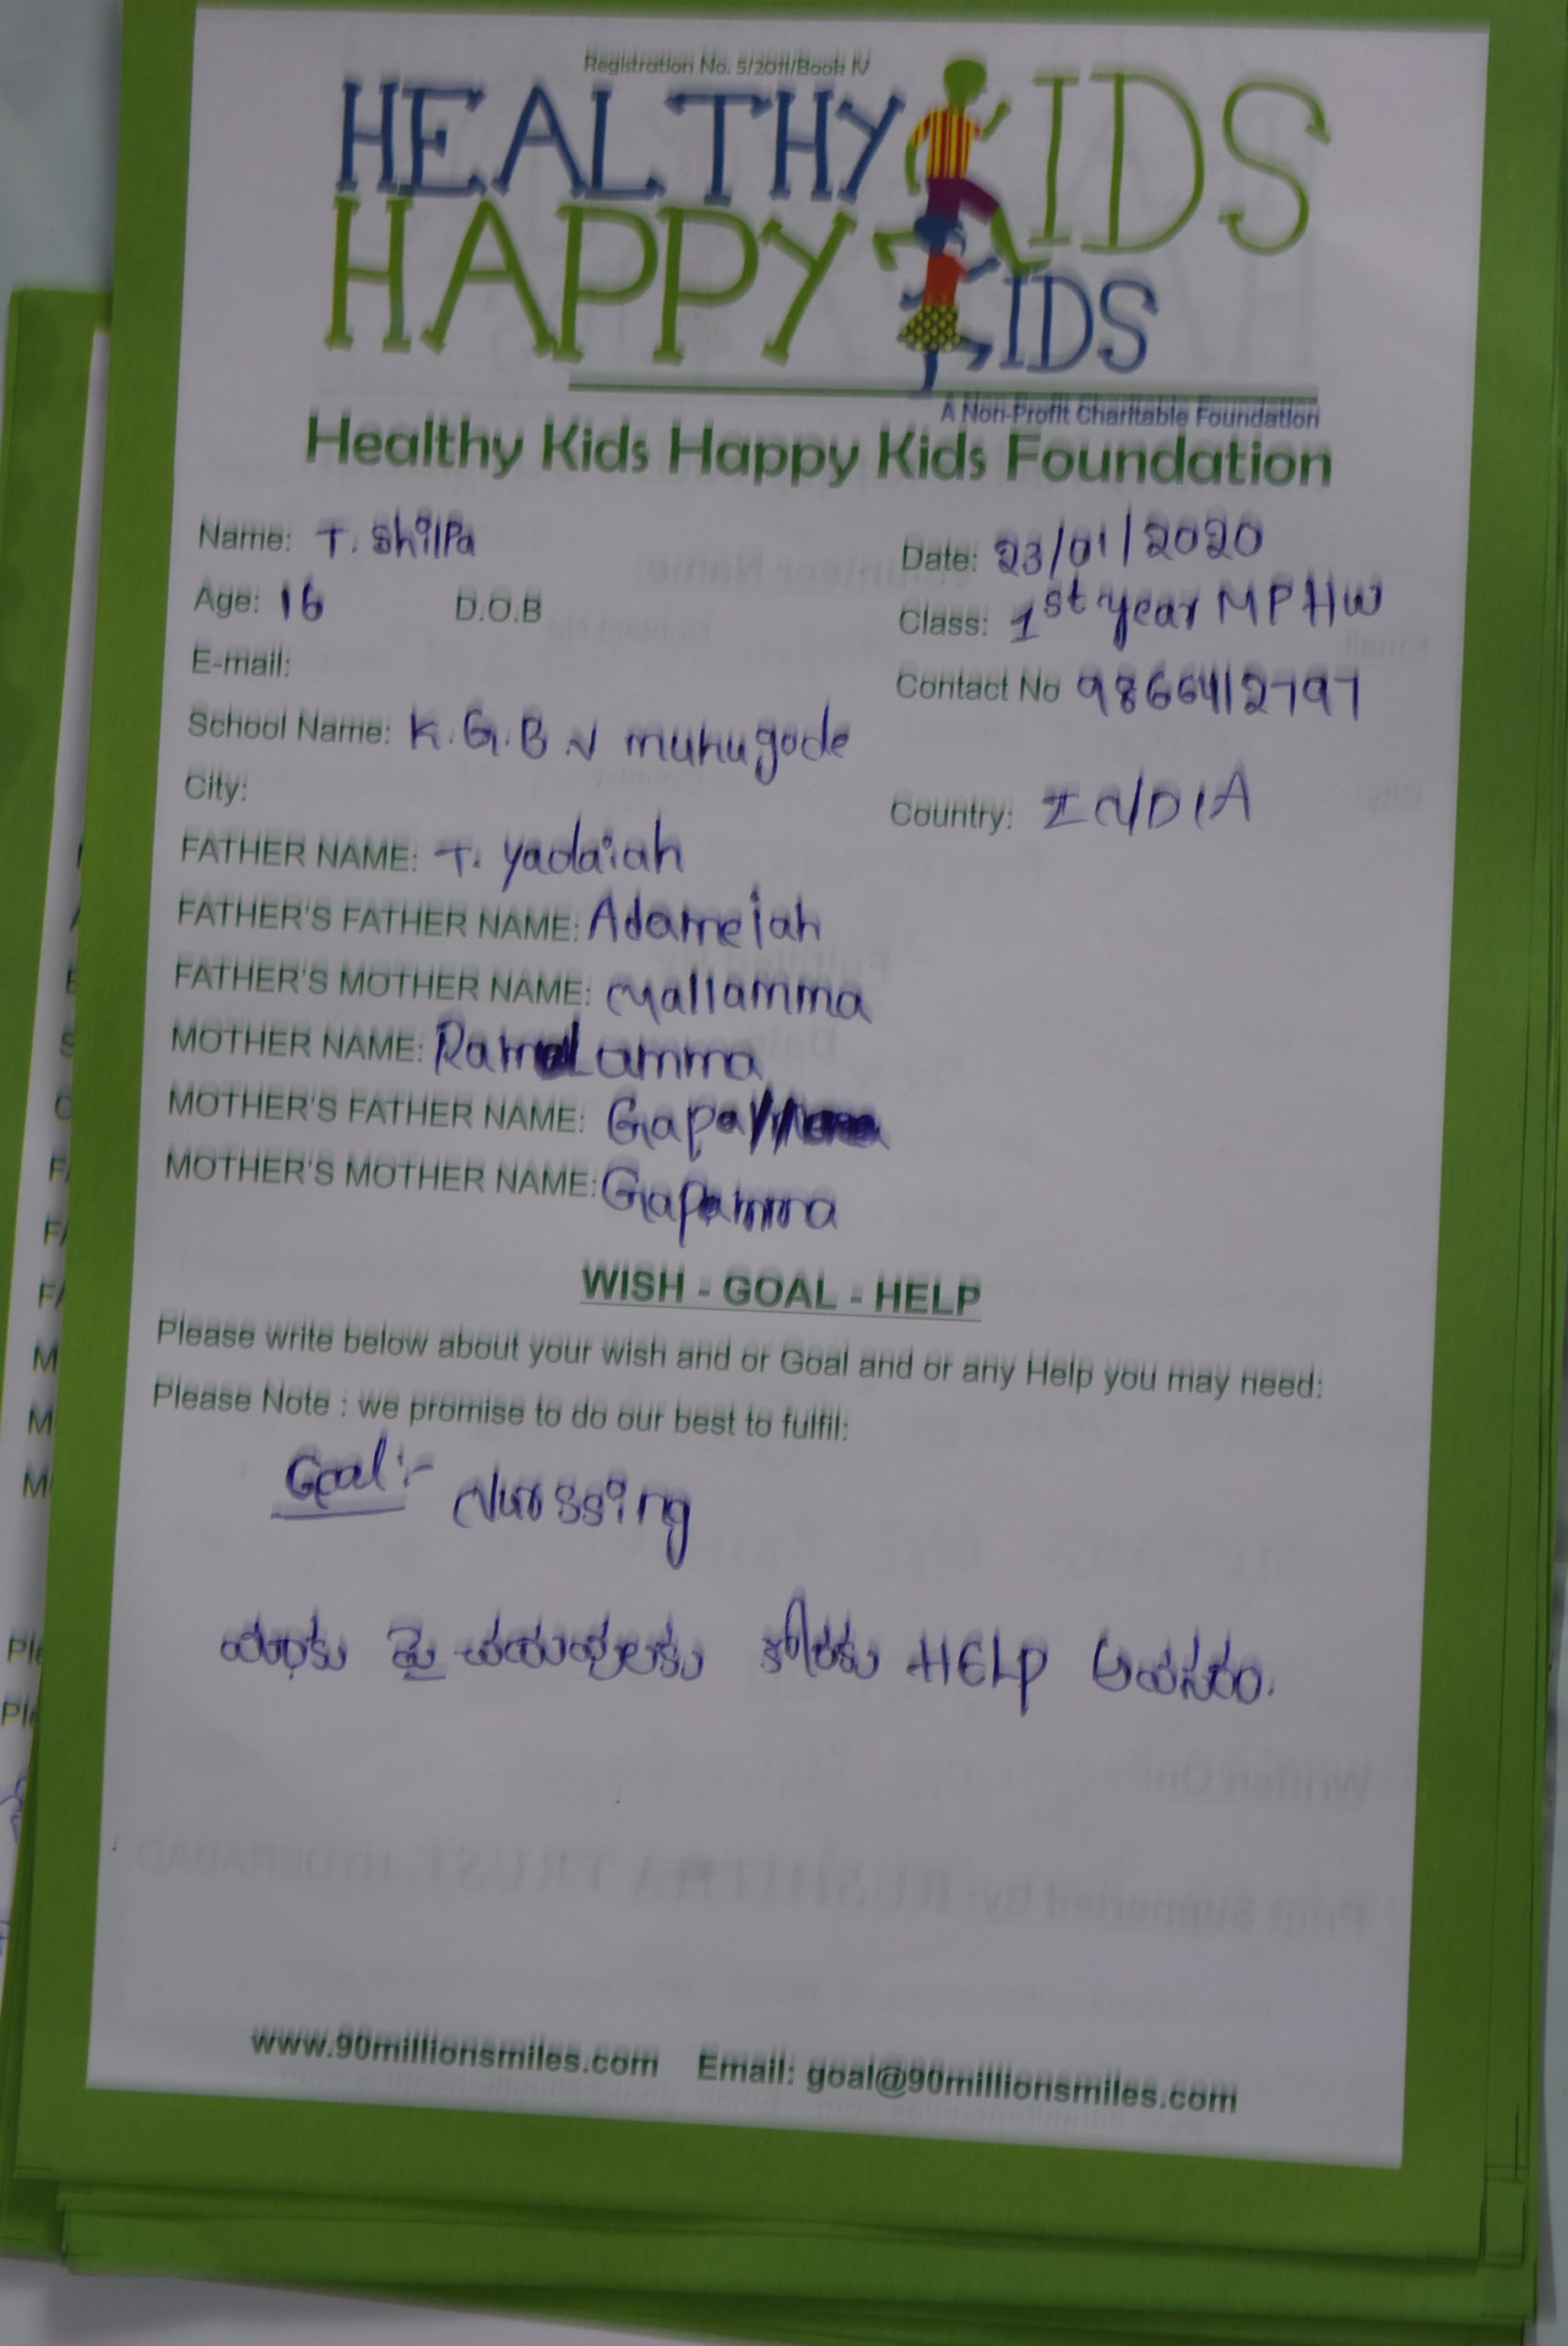 Registration No. 5/2011/Book IV
HEALTHY KIDS
HAPPY KIDS
A Non-Profit Charitable Foundation
Healthy Kids Happy Kids Foundation
Name: T. Shilpa Date: 23/01/2020
Age: 16 D.O.B Class: 1st year MPHW
E-mail: Contact No 9866412797
School Name: K.G.B.V munugode
City: Country: INDIA
FATHER NAME: T. Yadaiah
FATHER'S FATHER NAME: Adameiah
FATHER'S MOTHER NAME: Mallamma
MOTHER NAME: Ramulamma
MOTHER'S FATHER NAME:
MOTHER'S MOTHER NAME: Gapamma
WISH - GOAL - HELP
Please write below about your wish and or Goal and or any Help you may need:
Please Note : we promise to do our best to fulfil:
Goal:- Nurssing
మాకు పై చదువులకు కొరకు HELP అవసరం.
www.90millionsmiles.com Email: goal@90millionsmiles.com